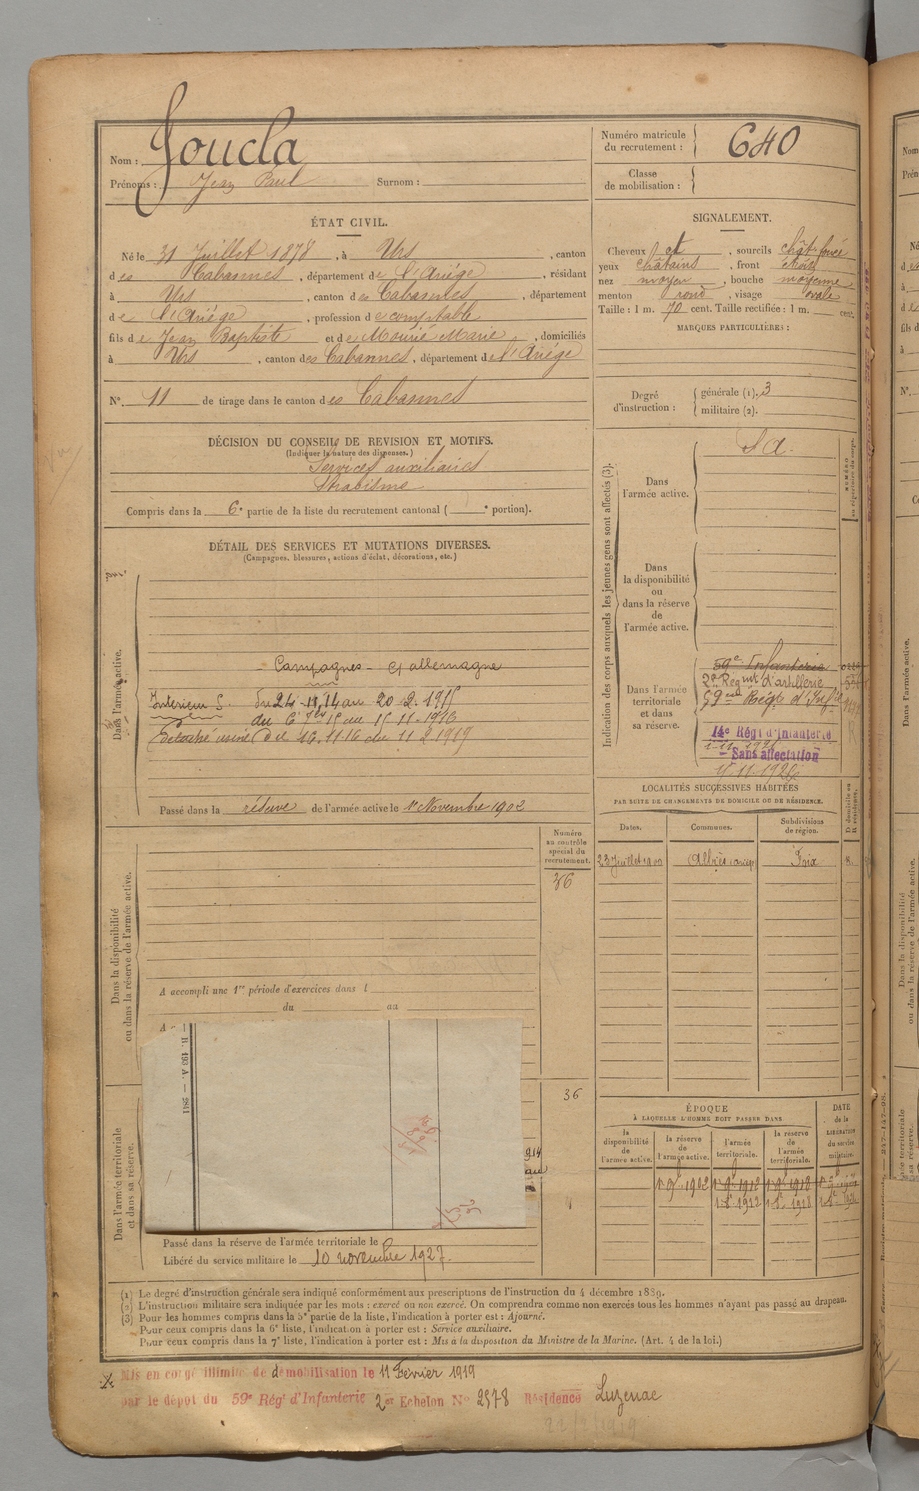 Nom : Joucla
Prénoms : Jean Paul Surnom :
Numéro matricule du recrutement : 640
Classe de mobilisation :
ÉTAT CIVIL.
Né le 31 Juillet 1878, à Urs, canton
des Cabannes, département de l'Ariége, résidant
à Urs, canton des Cabannes, département
de l'Ariége, profession de comptable
fils de Jean Baptiste et de Mouné Marie, domiciliés
à Urs, canton des Cabannes, département de l'Ariége
N° 11 de tirage dans le canton des Cabannes
SIGNALEMENT.
Cheveux , sourcils chât. foncé
yeux châtains, front étroit
nez moyen, bouche moyenne
menton rond, visage ovale
Taille : 1 m. 70 cent. Taille rectifiée : 1 m. cent.
MARQUES PARTICULIÈRES :
Degré d'instruction : générale (1). 3
militaire (2).
DÉCISION DU CONSEIL DE REVISION ET MOTIFS.
(Indiquer la nature des dispenses.)
Services auxiliaires
Strabisme
Compris dans la 6e partie de la liste du recrutement cantonal ( e portion).
DÉTAIL DES SERVICES ET MUTATIONS DIVERSES.
(Campagnes, blessures, actions d'éclat, décorations, etc.)
Dans l'armée active.
Campagnes - C/ allemagne
Intérieur S. Du 24-11-14 au 20-2-1915
du 6 au 15-11-1916
Détaché usine du 16.11.16 au 11 2 1919
Passé dans la réserve de l'armée active le 1er Novembre 1902
Indication des corps auxquels les jeunes gens sont affectés (3).
Dans l'armée active.
S a.
Dans la disponibilité ou dans la réserve de l'armée active.
Dans l'armée territoriale et dans sa réserve.
59e Infanterie
2e Regnt d'artillerie
59eme Régt d'Infie
14e Régt d'Infanterie
Sans affectation
LOCALITÉS SUCCESSIVES HABITÉES
PAR SUITE DE CHANGEMENTS DE DOMICILE OU DE RÉSIDENCE.
Dates. Communes. Subdivisions de région. D. domicile ou R. résidence.
23 Juillet 1900 Albiès Foix R.
Numéro au contrôle spécial du recrutement.
36
Dans la disponibilité ou dans la réserve de l'armée active.
A accompli une 1re période d'exercices dans l
du au
B. 193 A. — 3841
36
Dans l'armée territoriale et dans sa réserve.
Passé dans la réserve de l'armée territoriale le
Libéré du service militaire le 10 novembre 1927.
ÉPOQUE
À LAQUELLE L'HOMME DOIT PASSER DANS
la disponibilité de l'armée active. la réserve de l'armée active. l'armée territoriale. la réserve de l'armée territoriale.
DATE de la LIBÉRATION du service militaire.
(1) Le degré d'instruction générale sera indiqué conformément aux prescriptions de l'instruction du 4 décembre 1889.
(2) L'instruction militaire sera indiquée par les mots : exercé ou non exercé. On comprendra comme non exercés tous les hommes n'ayant pas passé au drapeau.
(3) Pour les hommes compris dans la 5e partie de la liste, l'indication à porter est : Ajourné.
Pour ceux compris dans la 6e liste, l'indication à porter est : Service auxiliaire.
Pour ceux compris dans la 7e liste, l'indication à porter est : Mis à la disposition du Ministre de la Marine. (Art. 4 de la loi.)
Mis en congé illimité de démobilisation le 11 Février 1919
par le dépôt du 59e Régt d'Infanterie 2er Echelon N° 2578 Résidence Luzenac
22/2/1919